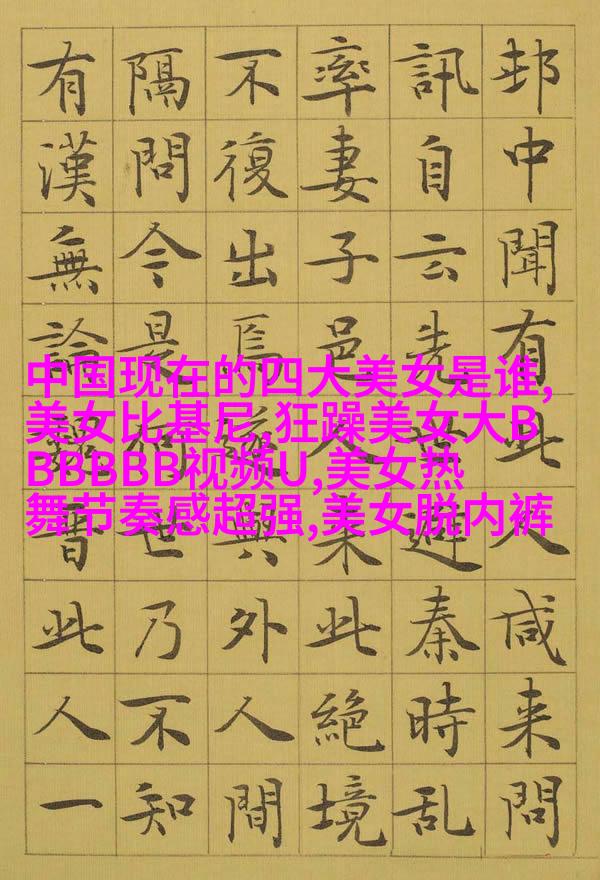 中国现在的四大美女是谁,
美女比基尼,狂躁美女大B
BBBBBB视频U,美女热
舞节奏感超强,美女脱内裤
邨中聞有此人咸来問
訊自云先世避秦時乱
率妻子邑人来此絶境
不復出焉與外人間
隔問今是何世乃不知
有漢無論魏晋此人一